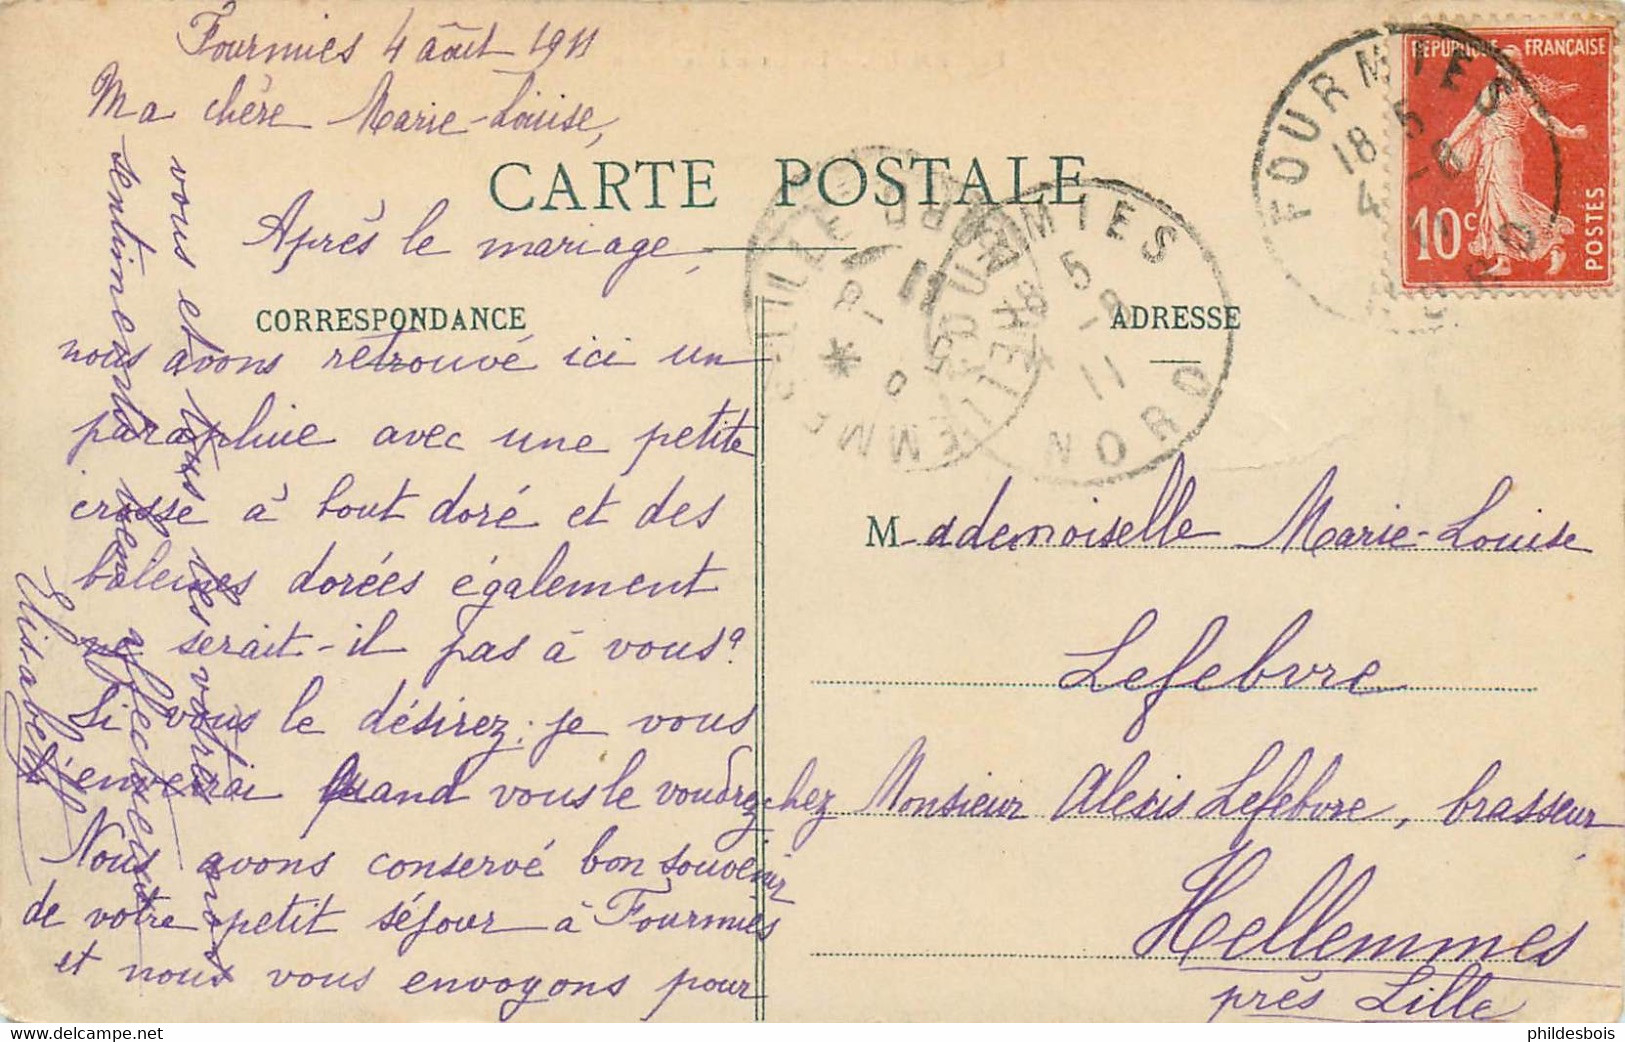 Fourmies 4 août 1911
Ma chère Marie-Louise,
CARTE POSTALE
Après le mariage,
CORRESPONDANCE
nous avons retrouvé ici un
parapluie avec une petite
crosse à bout doré et des
baleines dorées également
ne serait-il pas à vous?
Si vous le désirez: je vous
l'enverrai quand vous le voudrez
Nous avons conservé bon souvenir
de votre petit séjour à Fourmies
et nous vous envoyons pour
vous et tous les vôtres nos
sentiments bien affectueux
Elisabeth
RÉPUBLIQUE FRANÇAISE
10c
POSTES
FOURMIES
18 5
4 -8
11
NORD
FOURMIES
18 5
4 -8
11
NORD
HELLEMMES-LILLE
NORD
ADRESSE
Mademoiselle Marie-Louise
Lefebvre
chez Monsieur Alexis Lefebvre, brasseur
Hellemmes
près Lille
phildesbois